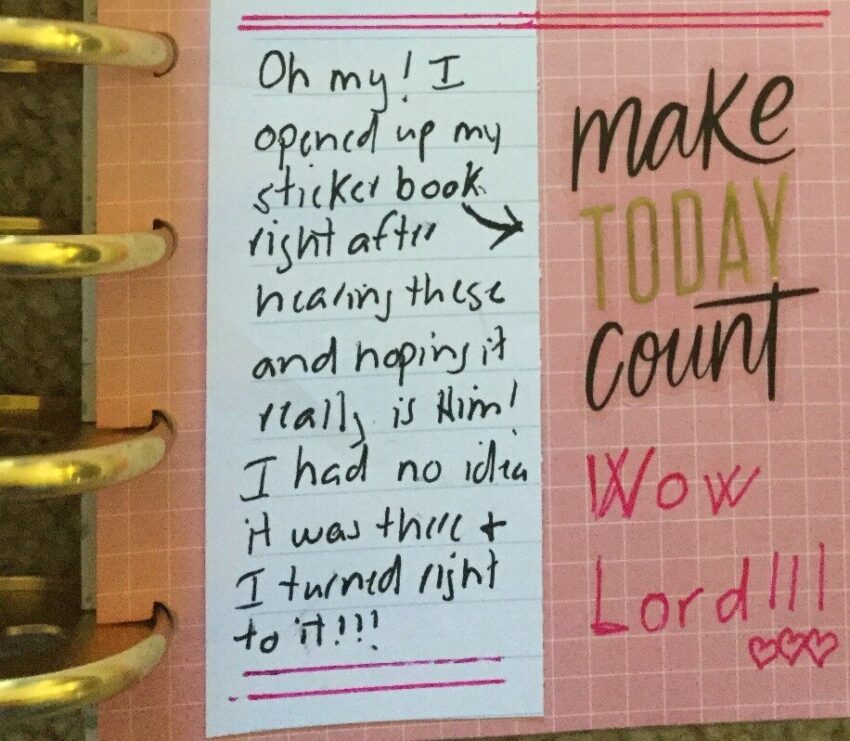 Oh my! I
opened up my
sticker book
right after
hearing these
and hoping it
really is Him!
I had no idea
it was there +
I turned right
to it!!!
make
TODAY
count
Wow
Lord!!!